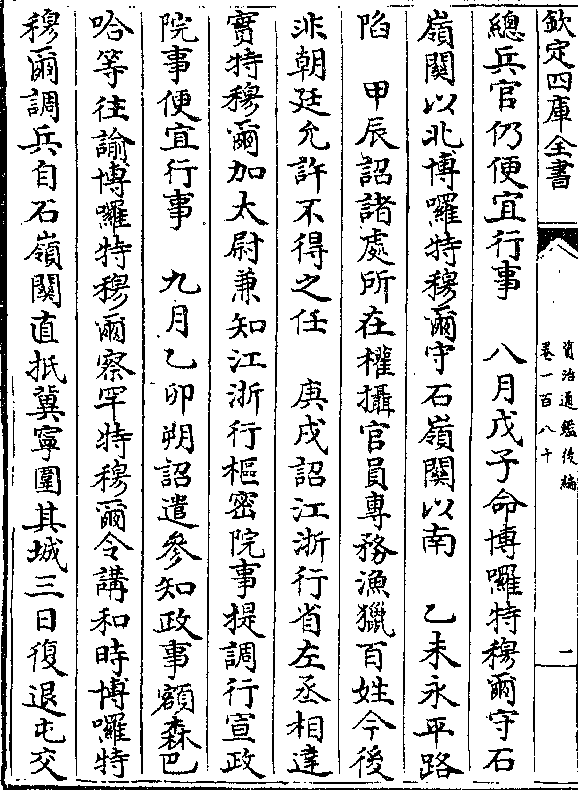 欽定四庫全書
資治通鑑後編
卷一百八十
一
總兵官仍便宜行事　八月戊子命博囉特穆爾守石
嶺關以北博囉特穆爾守石嶺關以南　乙未永平路
陷　甲辰詔諸處所在權攝官員專務漁獵百姓今後
非朝廷允許不得之任　庚戌詔江浙行省左丞相達
實特穆爾加太尉兼知江浙行樞密院事提調行宣政
院事便宜行事　九月乙卯朔詔遣參知政事額森巴
哈等往諭博囉特穆爾察罕特穆爾令講和時博囉特
穆爾調兵自石嶺關直抵冀寧圍其城三日復退屯交